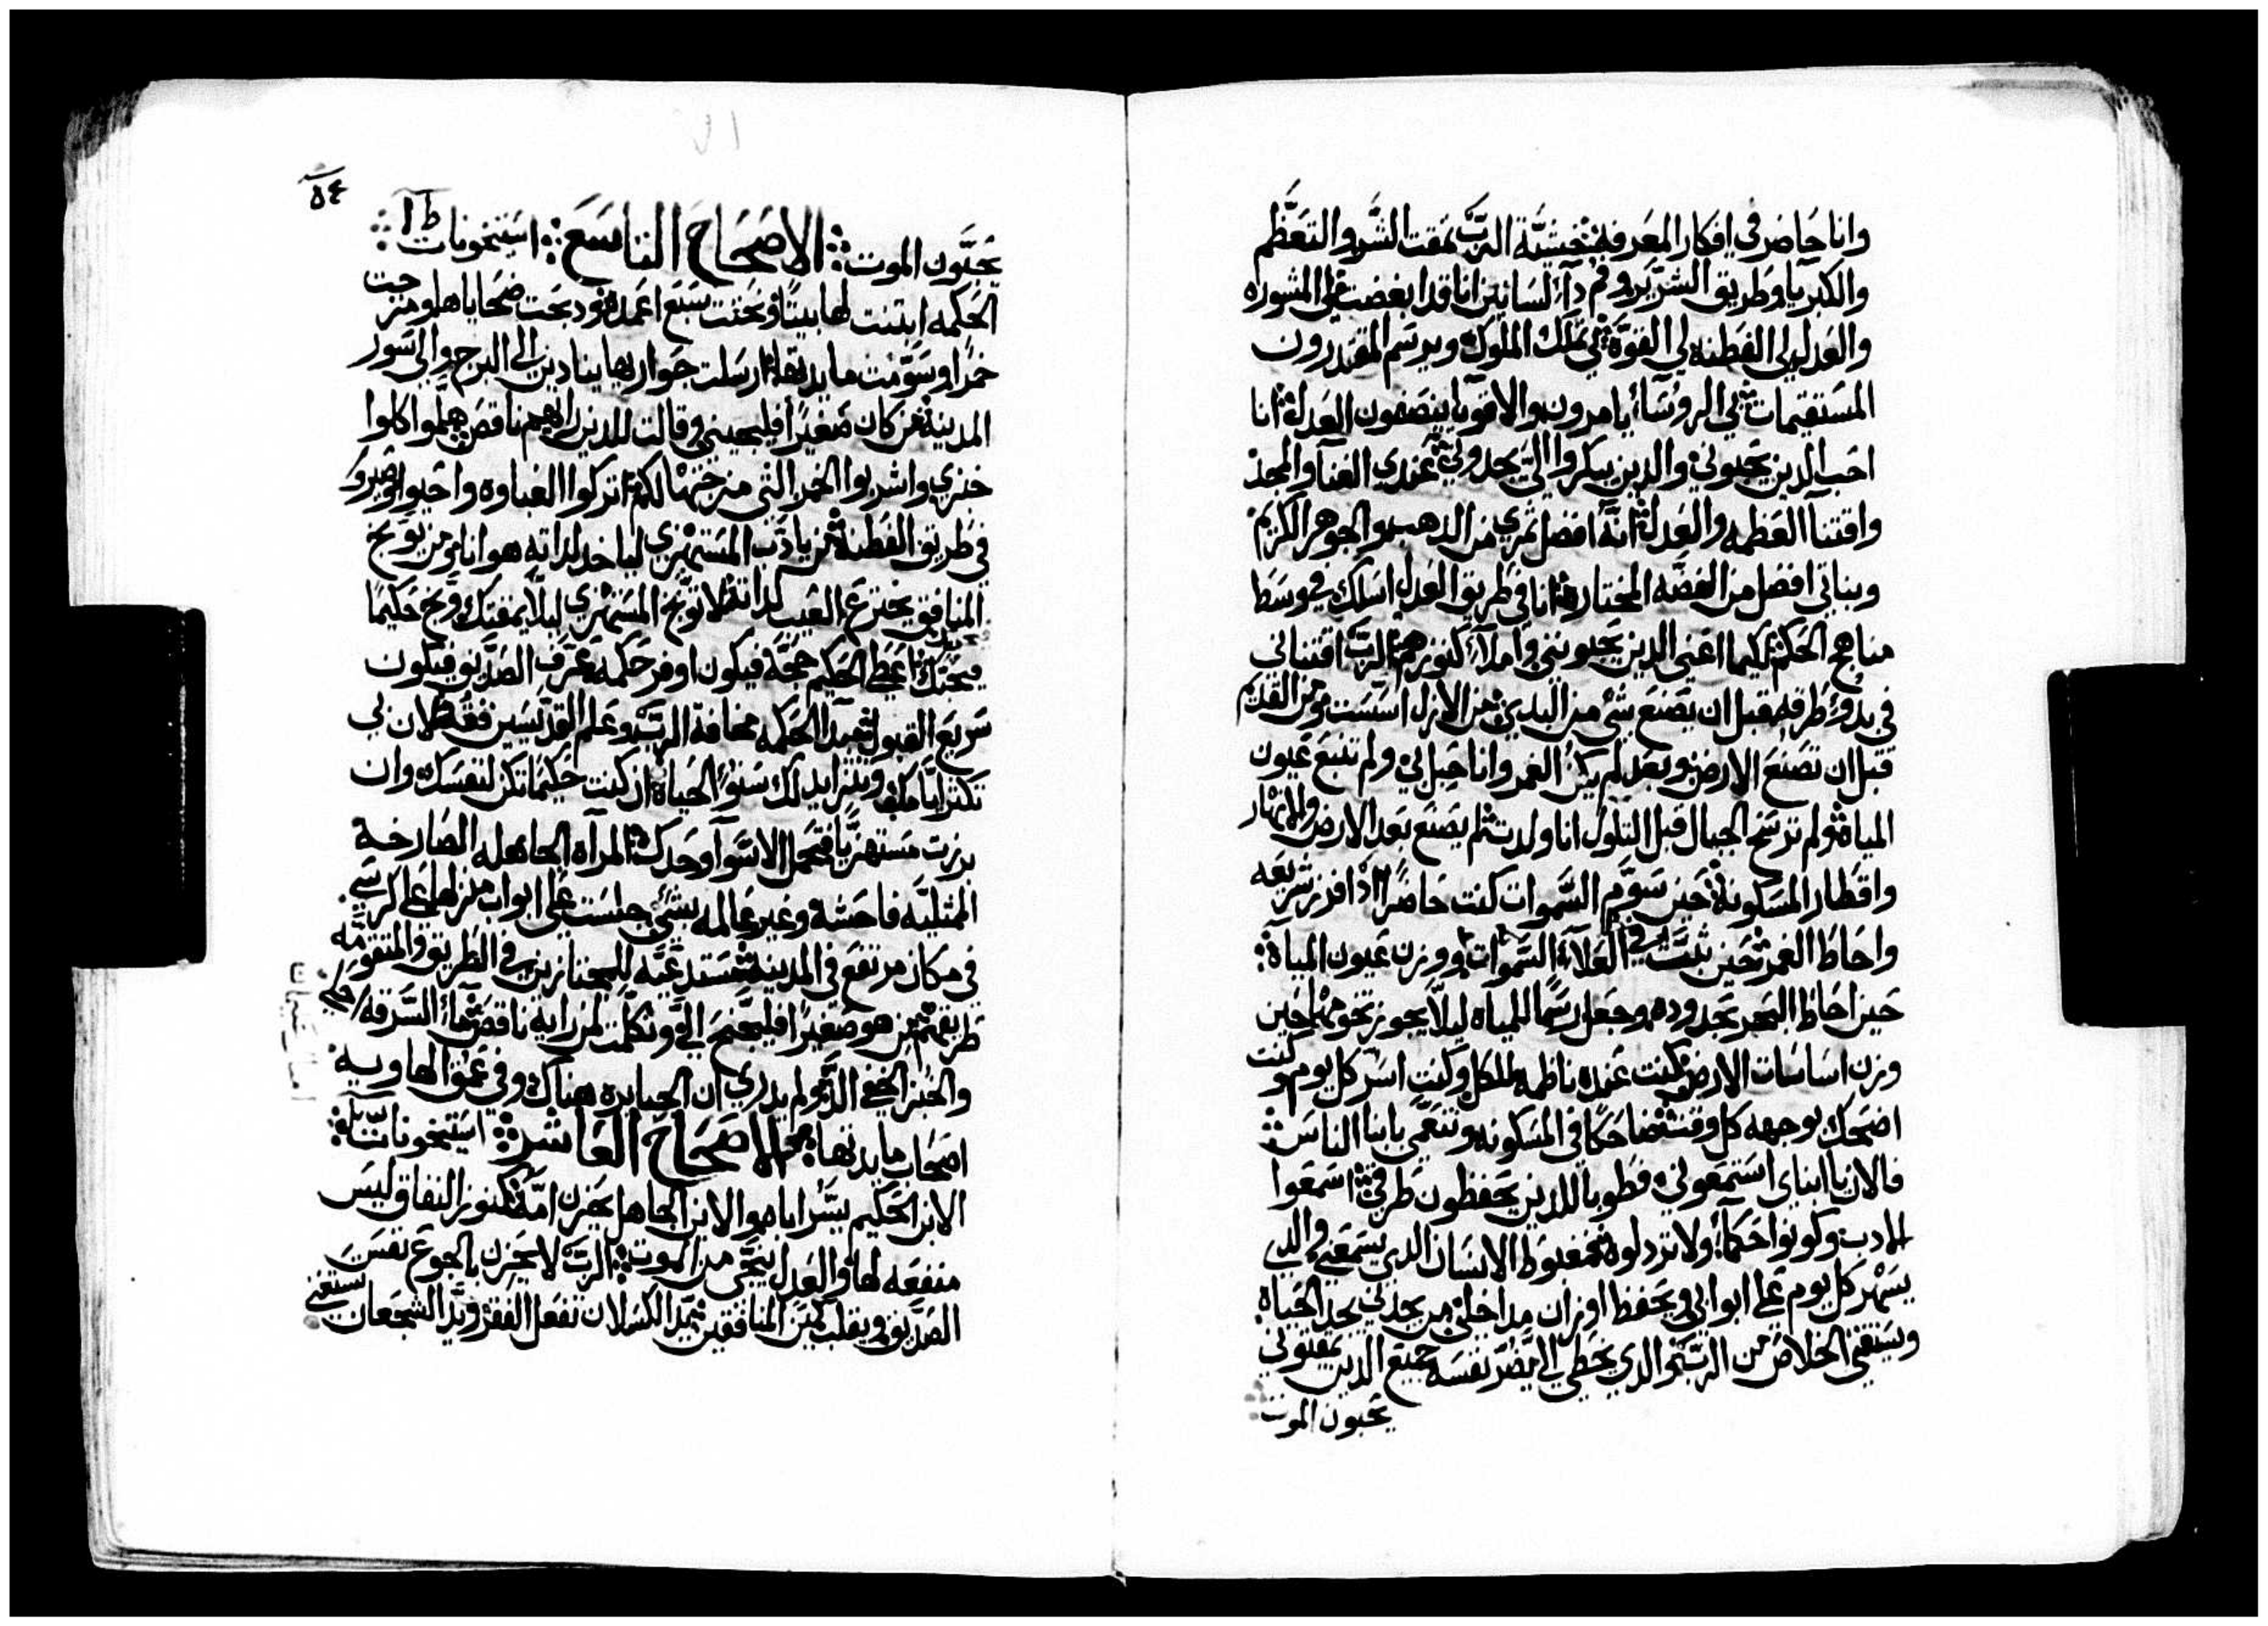 وانا حاضر في افكار المعرفه خشية الرب تمقت الشر والتعظم
والكبريا وطريق الشرير وفم ذا لسانين انا قد ابغضت لي المشوره
والعدل لي الفطنه لي القوة بي تملك الملوك ويرسم المقتدرون
المستقيمات بي الروسآء يامرون والاقويا ينصفون العدل انا
احب الذين يحبوني والذين يبكروا اليّ يجدوني عندي الغنا والمجد
واقتنآ العظمه والعدل انه افضل ثمري من الذهب والجوهر الكريم
ونباتي افضل من الفضه المختاره انا في طريق العدل اسلك في وسط
مناهج الحكم لكيما اغني الذين يحبونني واملآء كنوزهم الرب اقتناني
في بدو طرقه قبل ان يصنع شي من البدي من الازل اسست ومن القديم
قبل ان تصنع الارض وبعد لم يكن الغمر وانا حبل بي ولم تنبع عيون
المياه ولم ترسخ الجبال قبل التلول انا ولدت لم يصنع بعد الارض والانهار
واقطار المسكونة حين سوّم السموات كنت حاضرًا اذ افرز شريعه
واحاط الغمر حين ثبت في العلآء السموات ووزن عيون المياه
حين احاط البحر بحدوده وجعل رسمًا للمياه ليلا يجوز تخومها حين
وزن اساسات الارض كنت عنده ناظمه للكل وكنت اسر كل يوم وكنت
اضحك بوجهه كل وقت ضاحكا في المسكونه وتنعمي بابنا الناس
فالان يا ابناي استمعوني فطوبا للذين يحفظون طرقي اسمعوا
الادب وكونوا حكمآء ولا ترذلوه مغبوط الانسان الذي يسمعني والذي
يسهر كل يوم على ابوابي ويحفظ اوزان مداخلي من يجدني يجد الحياة
ويستقي الخلاص من الرب والذي يخطي الي يضر نفسه جميع الذين يمقتوني
يحبون الموت
٥٤
يحبّون الموت الاصحاح التاسع استيخونات ط ١
الحكمه ابتنت لها بيتًا ونحتت سبع اعمده وذبحت ضحاياها ومزجت
خمرًا وسوّمت مايدتها ارسلت جوارها ينادين الى البرج والى سور
المدينة من كان صغيرًا فليجيني وقالت للذين رايهم ناقص هلموا كلوا
خبزي واشربوا الخمر التي مزجتها لكم اتركوا الغباوه واحيوا وصيروا
في طريق الفطنه من يادّب المستهزي لياخذ لذاته هوانا ومن يوبخ
المنافق يخترع العيب لذاته لا توبخ المستهزي ليلا يمقتك وبخ حكيما
فيحبك اعط الحكيم حجّه فيكون اوفر حكمه عرّف الصديق فيكون
سريع القبول مبدا الحكمه مخافة الرب وعلم القديسين فقه لان بي
تكثر ايامك ويتزايد لك سنو الحياه ان كنت حكيما تكن لنفسك وان
برزت مستهزيًا فتحمل الاسوآ وحدك المرآه الجاهله الصارخة
الممثليّه فاحشة وغير عالمه بشئ جلست على ابواب منزلها على كرسي
في مكان مرتفع في المدينه مستدعيّه للمجتازين في الطريق والمتقومّه
طريقهم من هو صغيرًا فليجنح اليّ وتكلمت لمن رايه ناقص مآء السرقه احلى
والخبز الخفي الذ ولم يدري ان الجبابره هناك وفي عمق الهاويه
اصحاب مايدتها الاصحاح العاشر استيخونات
الابن الحكيم يسّر اباه والابن الجاهل يحزن امّه كنوز النفاق ليس
منفعه لها والعدل ينجّي من الموت الرب لا يحزن بالجوع نفس
الصديق ويقلب كمين المنافقين يد الكسلان تفعل الفقر ويد الشجعان تستغني